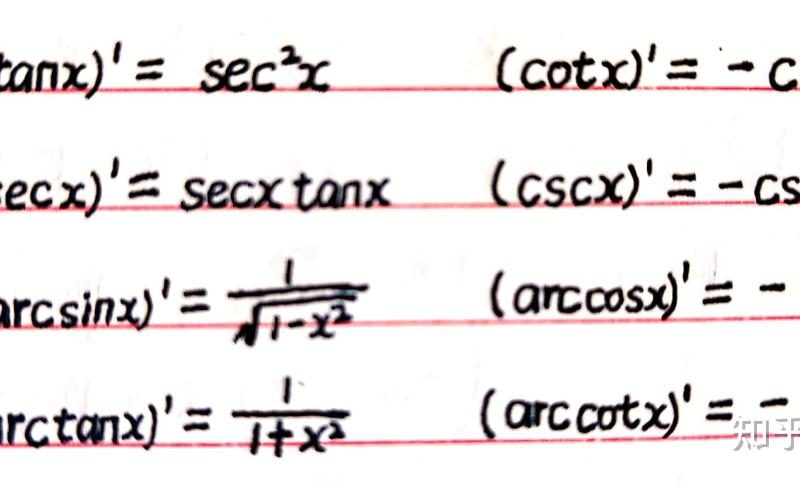 tanx)' = sec²x (cotx)' = -c
ecx)' = secx tanx (cscx)' = -cs
arcsinx)' = 1/√(1-x²) (arccosx)' = -
rctanx)' = 1/(1+x²) (arccotx)' = -
知乎